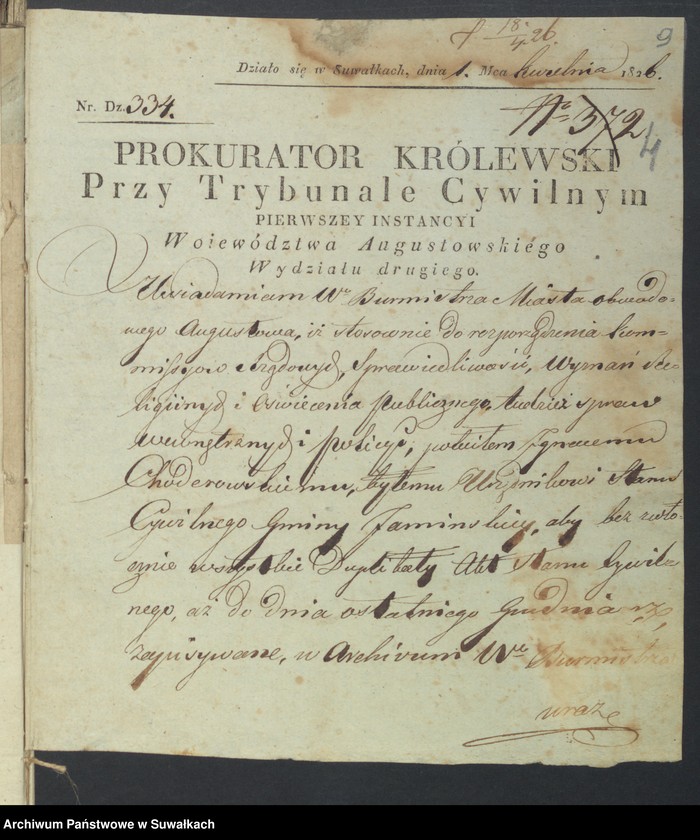 18/4 26
9
Działo się w Suwałkach, dnia 1. Mca kwietnia 1826.
Nr. Dz. 334.
No 372
4
PROKURATOR KRÓLEWSKI
Przy Trybunale Cywilnym
PIERWSZEY INSTANCYI
Woiewództwa Augustowskiégo
Wydziału drugiego.
Uwiadamiam We Burmistrza Miasta obwodo-
wego Augustowa, iż stosownie do rozporządzenia kom-
missyow rządowych, Sprawiedliwości, Wyznań Re-
ligiinych i Oświecenia publicznego, tudzież spraw
wewnętrznych i policyi, poleciłem Ignacemu
Choderowskiemu, byłemu Urzędnikowi Stanu
Cywilnego Gminy Jaminskiey, aby bez zwło-
cznie wszystkie Duplikaty Akt Stanu Cywil-
nego, aż do dnia ostatniego Grudnia r. z.
zapisywane, w Archivum We Burmistrza
wraz
Archiwum Państwowe w Suwałkach